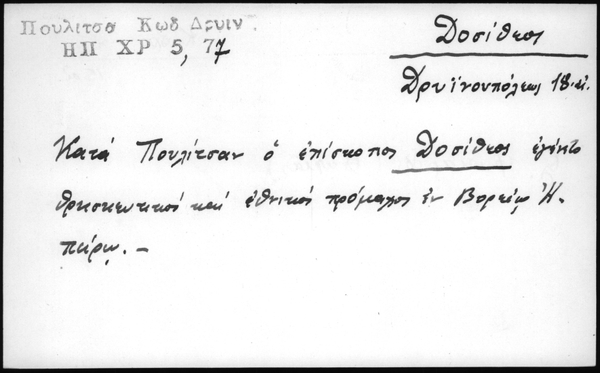 Πουλιτσα Κωδ Δρυιν.
ΗΠ ΧΡ 5, 77
Δοσίθεος
Δρυϊνουπόλεως 18.αἰ.
Κατά Πουλίτσαν ὁ ἐπίσκοπος Δοσίθεος ἐγένετο
θρησκευτικός καί ἐθνικός πρόμαχος ἐν Βορείῳ Ἠ-
πείρῳ. -